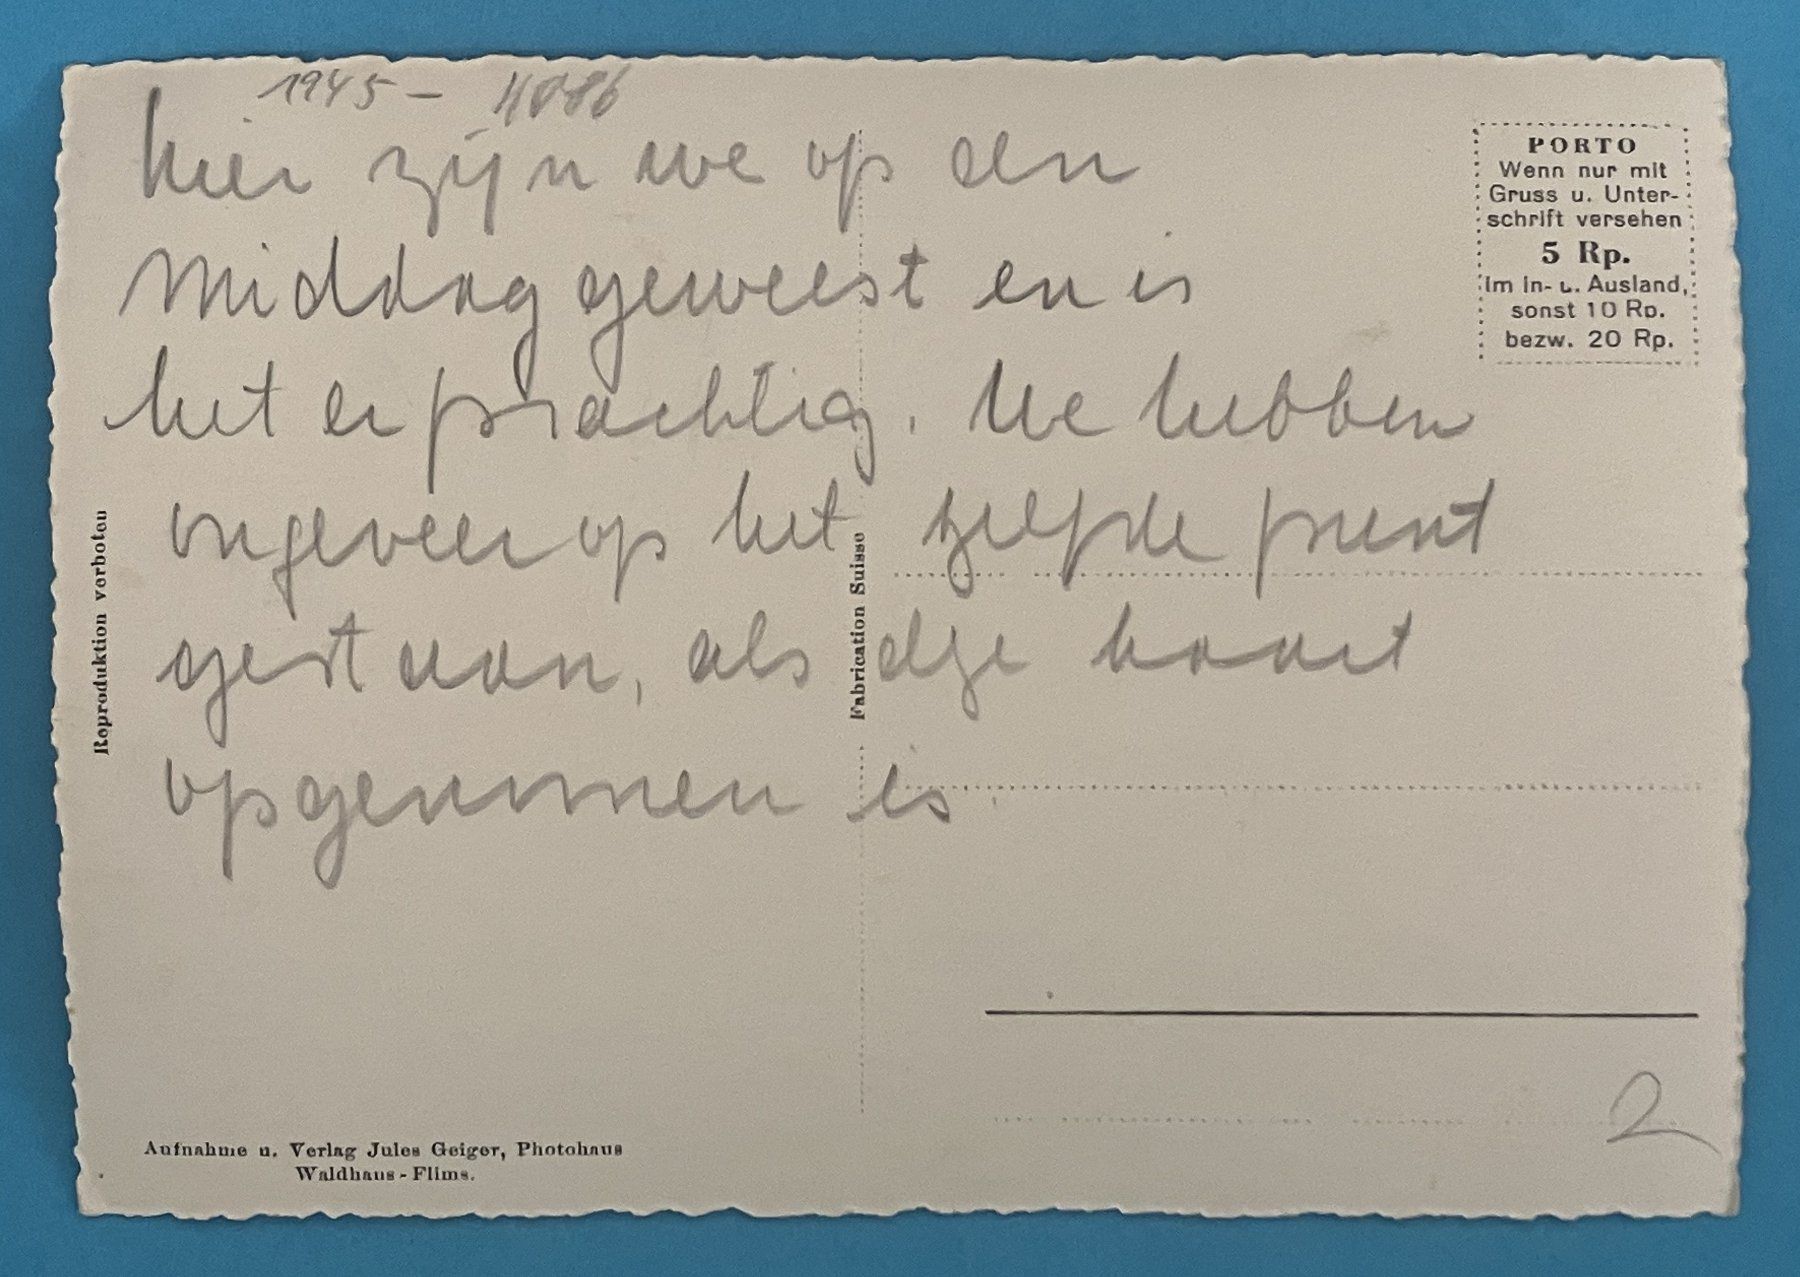 1945 –
hier zijn we op den
middag geweest en is
het er prachtig. We hebben
ongeveer op het zelfde punt
gestaan, als dze kaart
opgenomen is
PORTO
Wenn nur mit
Gruss u. Unter-
schrift versehen
5 Rp.
im In- u. Ausland,
sonst 10 Rp.
bezw. 20 Rp.
Reproduktion verboten
Fabrication Suisse
Aufnahme u. Verlag Jules Geiger, Photohaus
Waldhaus - Flims.
2